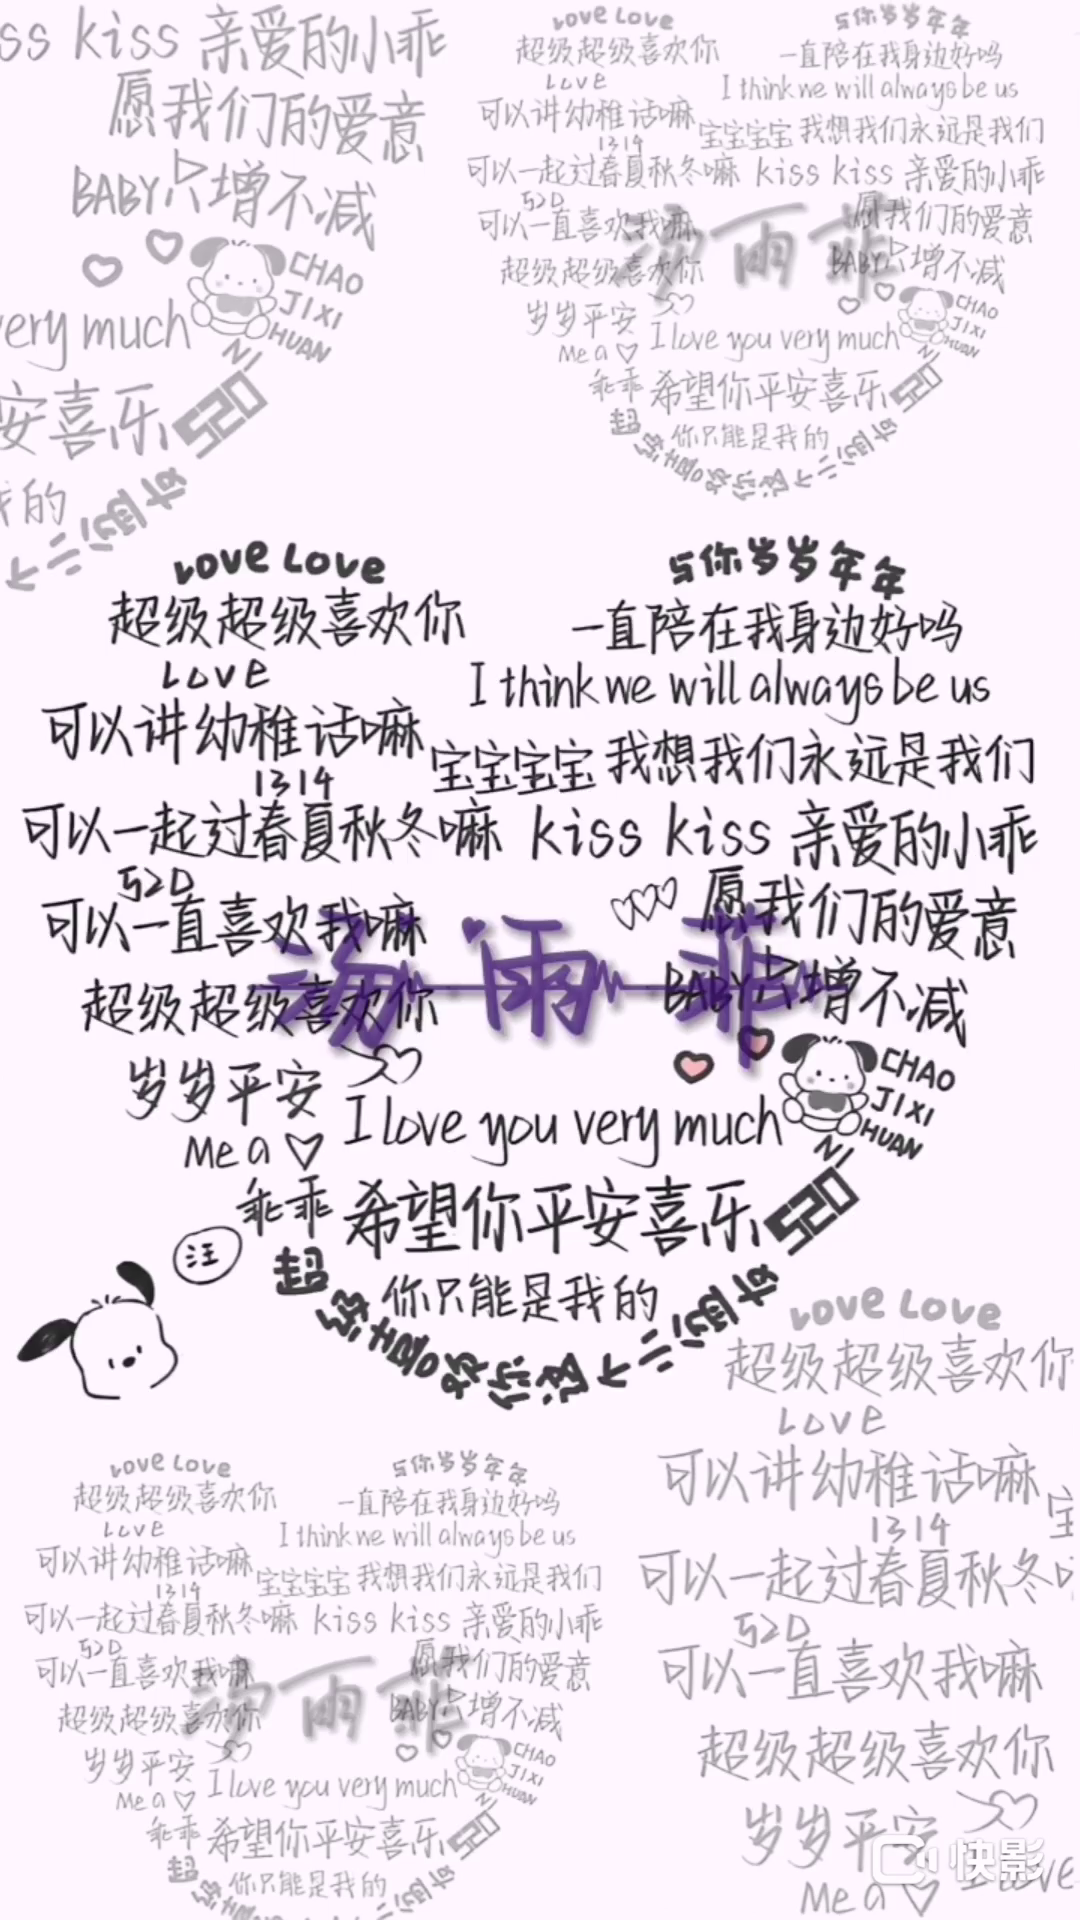 ss kiss 亲爱的小乖
愿我们的爱意
BABY只增不减
CHAO
JIXI
HUAN
NI
very much
安喜乐 520
我的
Love Love
与你岁岁年年
超级超级喜欢你
一直陪在我身边好吗
LOVE
I think we will always be us
可以讲幼稚话嘛
宝宝宝宝 我想我们永远是我们
1314
可以一起过春夏秋冬嘛 kiss kiss 亲爱的小乖
520
可以一直喜欢我嘛
愿我们的爱意
超级超级喜欢你
BABY只增不减
岁岁平安
CHAO
JIXI
HUAN
NI
Me a ♡ I love you very much
乖乖 希望你平安喜乐 520
你只能是我的
Love Love
与你岁岁年年
超级超级喜欢你
一直陪在我身边好吗
LOVE
I think we will always be us
可以讲幼稚话嘛
宝宝宝宝 我想我们永远是我们
1314
可以一起过春夏秋冬嘛 kiss kiss 亲爱的小乖
520
可以一直喜欢我嘛
愿我们的爱意
雨菲
超级超级喜欢你
BABY只增不减
岁岁平安
CHAO
JIXI
HUAN
NI
I love you very much
Me a ♡
乖乖 希望你平安喜乐 520
汪
你只能是我的
超级喜欢你这个
Love Love
超级超级喜欢你
LOVE
可以讲幼稚话嘛
1314
可以一起过春夏秋冬
520
可以一直喜欢我嘛
超级超级喜欢你
岁岁平安
Me a ♡ I love
Love Love
与你岁岁年年
超级超级喜欢你
一直陪在我身边好吗
LOVE
I think we will always be us
可以讲幼稚话嘛
宝宝宝宝 我想我们永远是我们
1314
可以一起过春夏秋冬嘛 kiss kiss 亲爱的小乖
520
可以一直喜欢我嘛
愿我们的爱意
超级超级喜欢你
BABY只增不减
岁岁平安
CHAO
JIXI
HUAN
NI
I love you very much
Me a ♡
乖乖 希望你平安喜乐 520
你只能是我的
快影